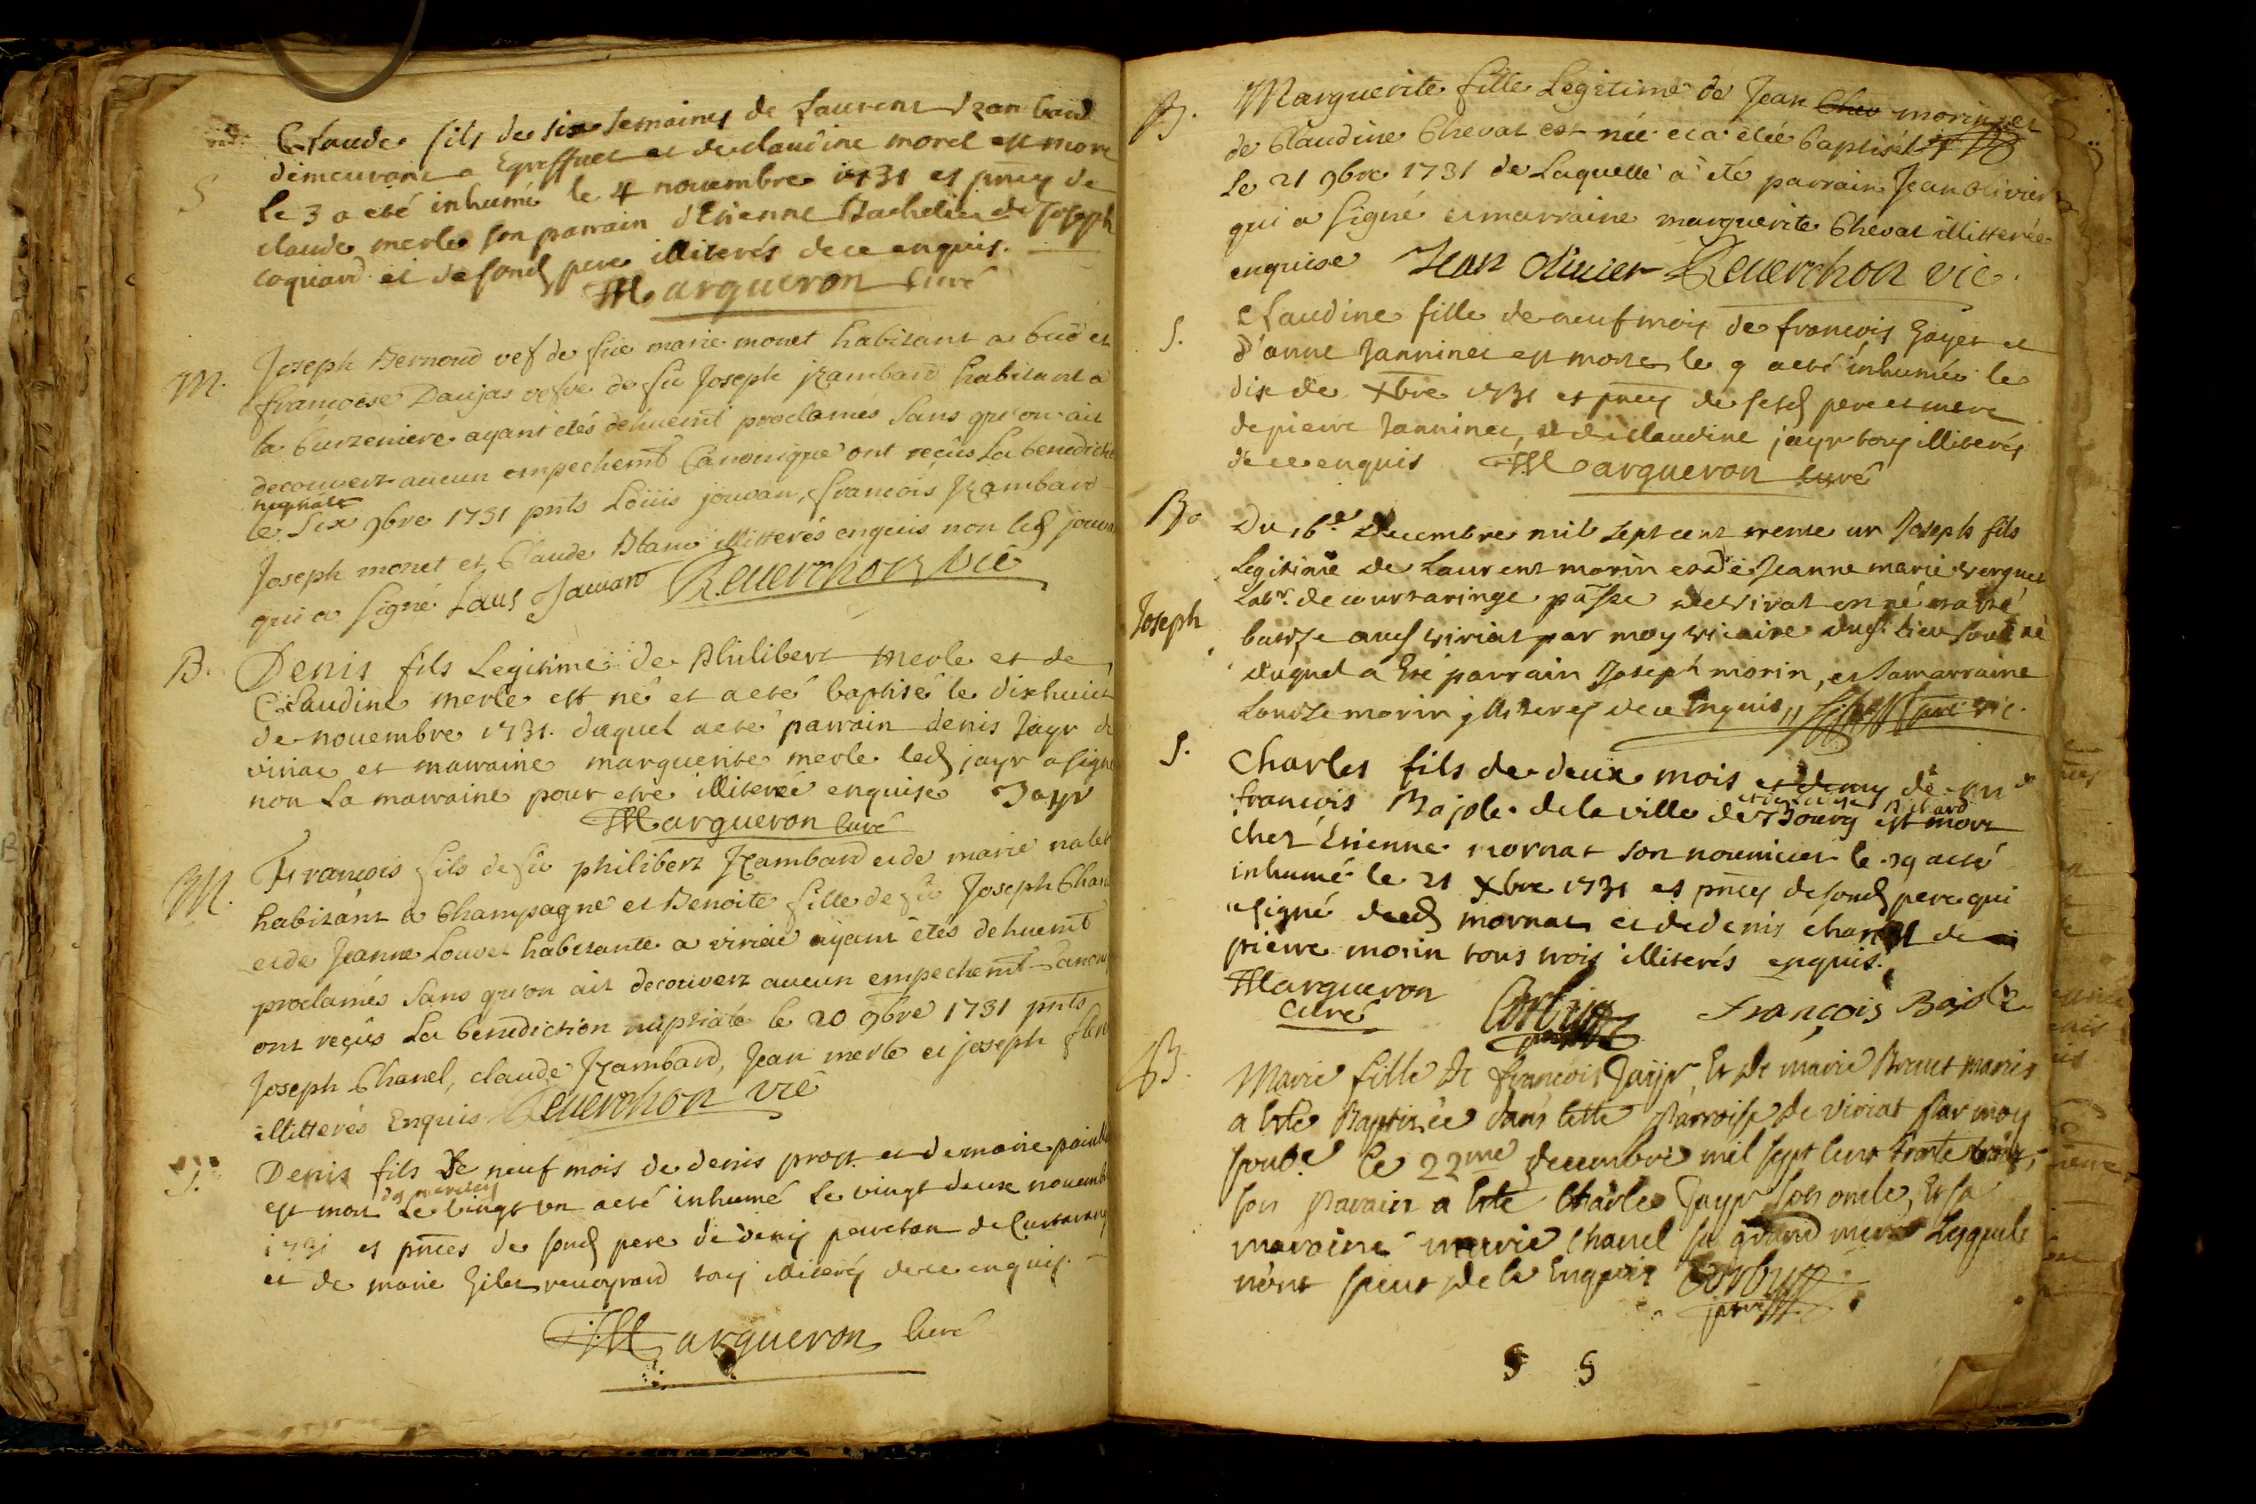 S
Claude fils de six semaines de Laurent Izambard
demeurant a Egreffuet et de claudine morel est mort
le 3 a eté inhumé le 4 novembre 1731 et pnces de
claude merle son parrain d'Etienne Bachelier de Joseph
coquard et de sond pere illiterés de ce enquis.
Margueron Curé
M.
Joseph Bernond vef de fue marie monet habitant a but et
francoise Daujas vefve de fu Joseph jzambard habitant a
la Curteniere ayant etés dehuemt proclamés Sans qu'on ait
decouvert aucun empechemt Canonique ont reçûs La benedictio
nuptiale
le Six 9bre 1731 pnts Loüis jouvan, francois Jzambard
Joseph monet et Claude Blanc illitterés enquis non led jouvan
qui a Signé Louis Jouvan Reverchon vic
B.
Denis fils Legitime de Philibert merle et de
Claudine merle est né et a eté baptisé le dixhuict
de novembre 1731. duquel a eté parrain denis Jayr de
viriat et marraine marguerite merle led jayr a signe
non La marraine pour etre illiterée enquise Jayr
Margueron curé
M.
François fils de fû philibert Jzambard et de marie nalet
habitant a Champagne et Benoite fille de fû Joseph Chanel
et de Jeanne Louvet habitante a viriat ayant étés dehuemt
proclamés Sans qu'on ait decouvert aucun empechemt Canoniq
ont reçûs La benediction nuptiale le 20 9bre 1731 pnts
Joseph Chanel, claude Jzambard, Jean merle et joseph
illitterés Enquis Reverchon vic
S.
Denis fils De neuf mois de denis prost et de marie
est mort Le vingt un a eté inhumé Le vingt deux novemb
1731 et pnces de sond pere de denis perreton de Curtaran
et de marie Gilet tous illiterés de ce enquis.
Margueron Curé
B.
Marguerite fille Legitime de Jean Chev morin et
de Claudine Chevat est née et a étée baptisée
Le 21 9bre 1731 de Laquelle a été parrain Jean olivier
qui a Signé et marraine marguerite Chevat illitterée
enquise Jean olivier Reverchon vic.
S.
Claudine fille de neuf mois de francois Gayet et
d'anne Janninet est morte le 9 a eté inhumée le
dix de Xbre 1731 et pnces de sesd pere et mere
de pierre Janninet, et de claudine jayr tous illiterés
de ce enquis Margueron Curé
B
Joseph
Du 16e Decembre mil sept cent trente un Joseph fils
Legitime de Laurent morin et de Jeanne marie verguet
Labr. de courtaringe passe de viriat est né et a eté
batisé aud viriat par moy vicaire dud. lieu sousné
duquel a Eté parrain Joseph morin, et sa marraine
Louise morin jlliteres de ce Enquis, vic.
S.
Charles fils de deux mois et demy de
francois Bajole de la ville de Bourg et mort
chez Etienne mornat son nourricier le 19 a eté
inhumé le 21 Xbre 1731 et pnces de sond pere qui
a signé dud mornat et de denis chanel de
pierre morin tous trois illiterés enquis.
Margueron
Curé
Corbin
François Bajole
B.
Marie fille De françois Jayr Et De marie Brunet mariés
a Eté Baptisée dans cette Parroisse de viriat par moy
soubé le 22me decembre mil sept Cent trente
son Parrain a Eté Charles Jayr son oncle, Et sa
maraine marie chanel sa grand mere Lesquels
n'ont sceut de ce Enquis Corbin
ptre
S S